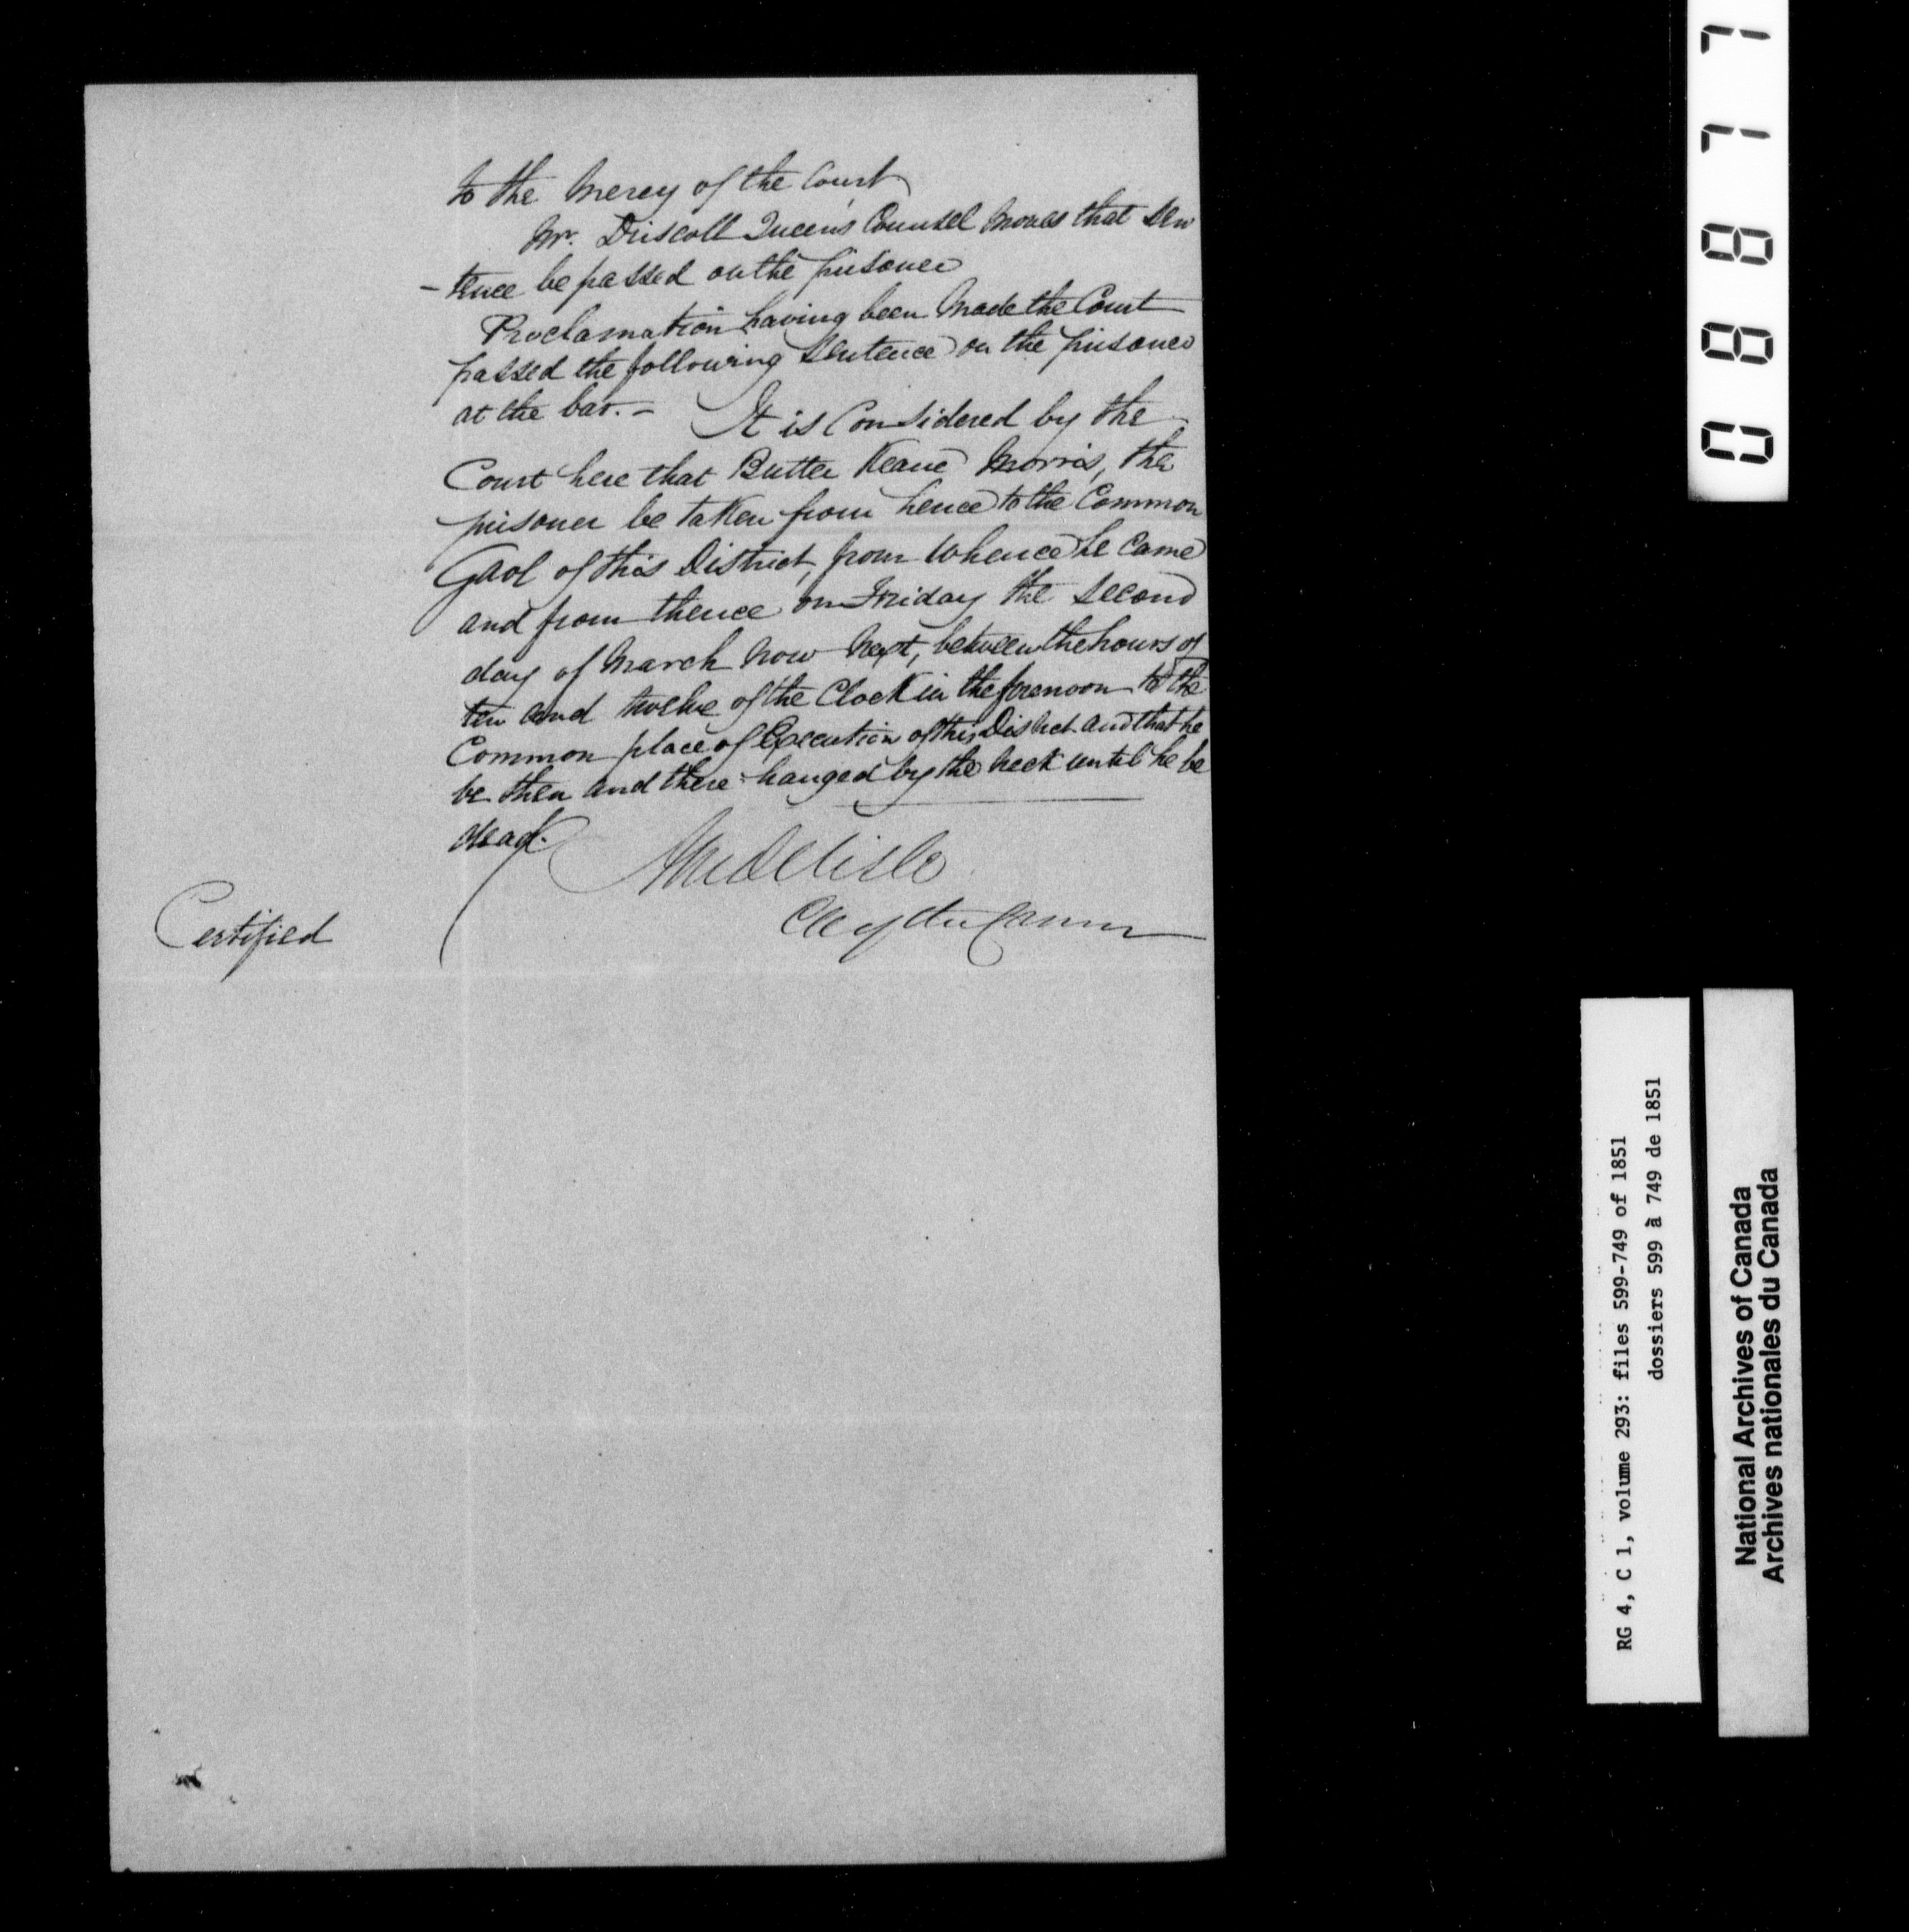 to the Mercy of the Court
Mr. Driscoll Queen's Counsel Moves that Sen
- tence be passed on the prisoner
Proclamation having been Made the Court
passed the following Sentence on the prisoner
at the bar. - It is Considered by the
Court here that Butter Keane Morris, the
prisoner be taken from hence to the Common
Gaol of this District, from Whence he Came
and from thence on Friday the Second
day of March now Next, between the hours of
ten and twelve of the Clock in the forenoon to the
Common place of Execution of this District and that he
be then and there hanged by the neck until he be
dead.
Delisle
Certified
08877
RG 4, C 1, volume 293: files 599-749 of 1851
dossiers 599 à 749 de 1851
National Archives of Canada
Archives nationales du Canada